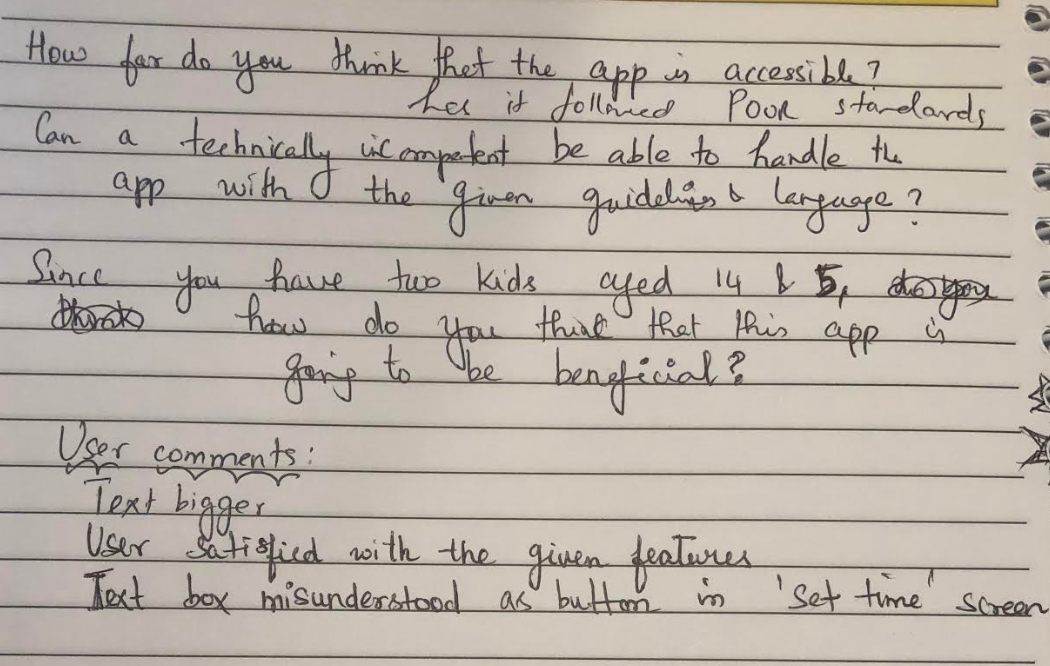 How far do you think thet the app is accessible?
has it followed POUR standards
Can a technically incompetent be able to handle the
app with the given guidelines & language?
Since you have two kids aged 14 & 5, do you
think how do you think that this app is
going to be beneficial?
User comments:
Text bigger
User satisfied with the given features
Text box misunderstood as button in 'set time' screen